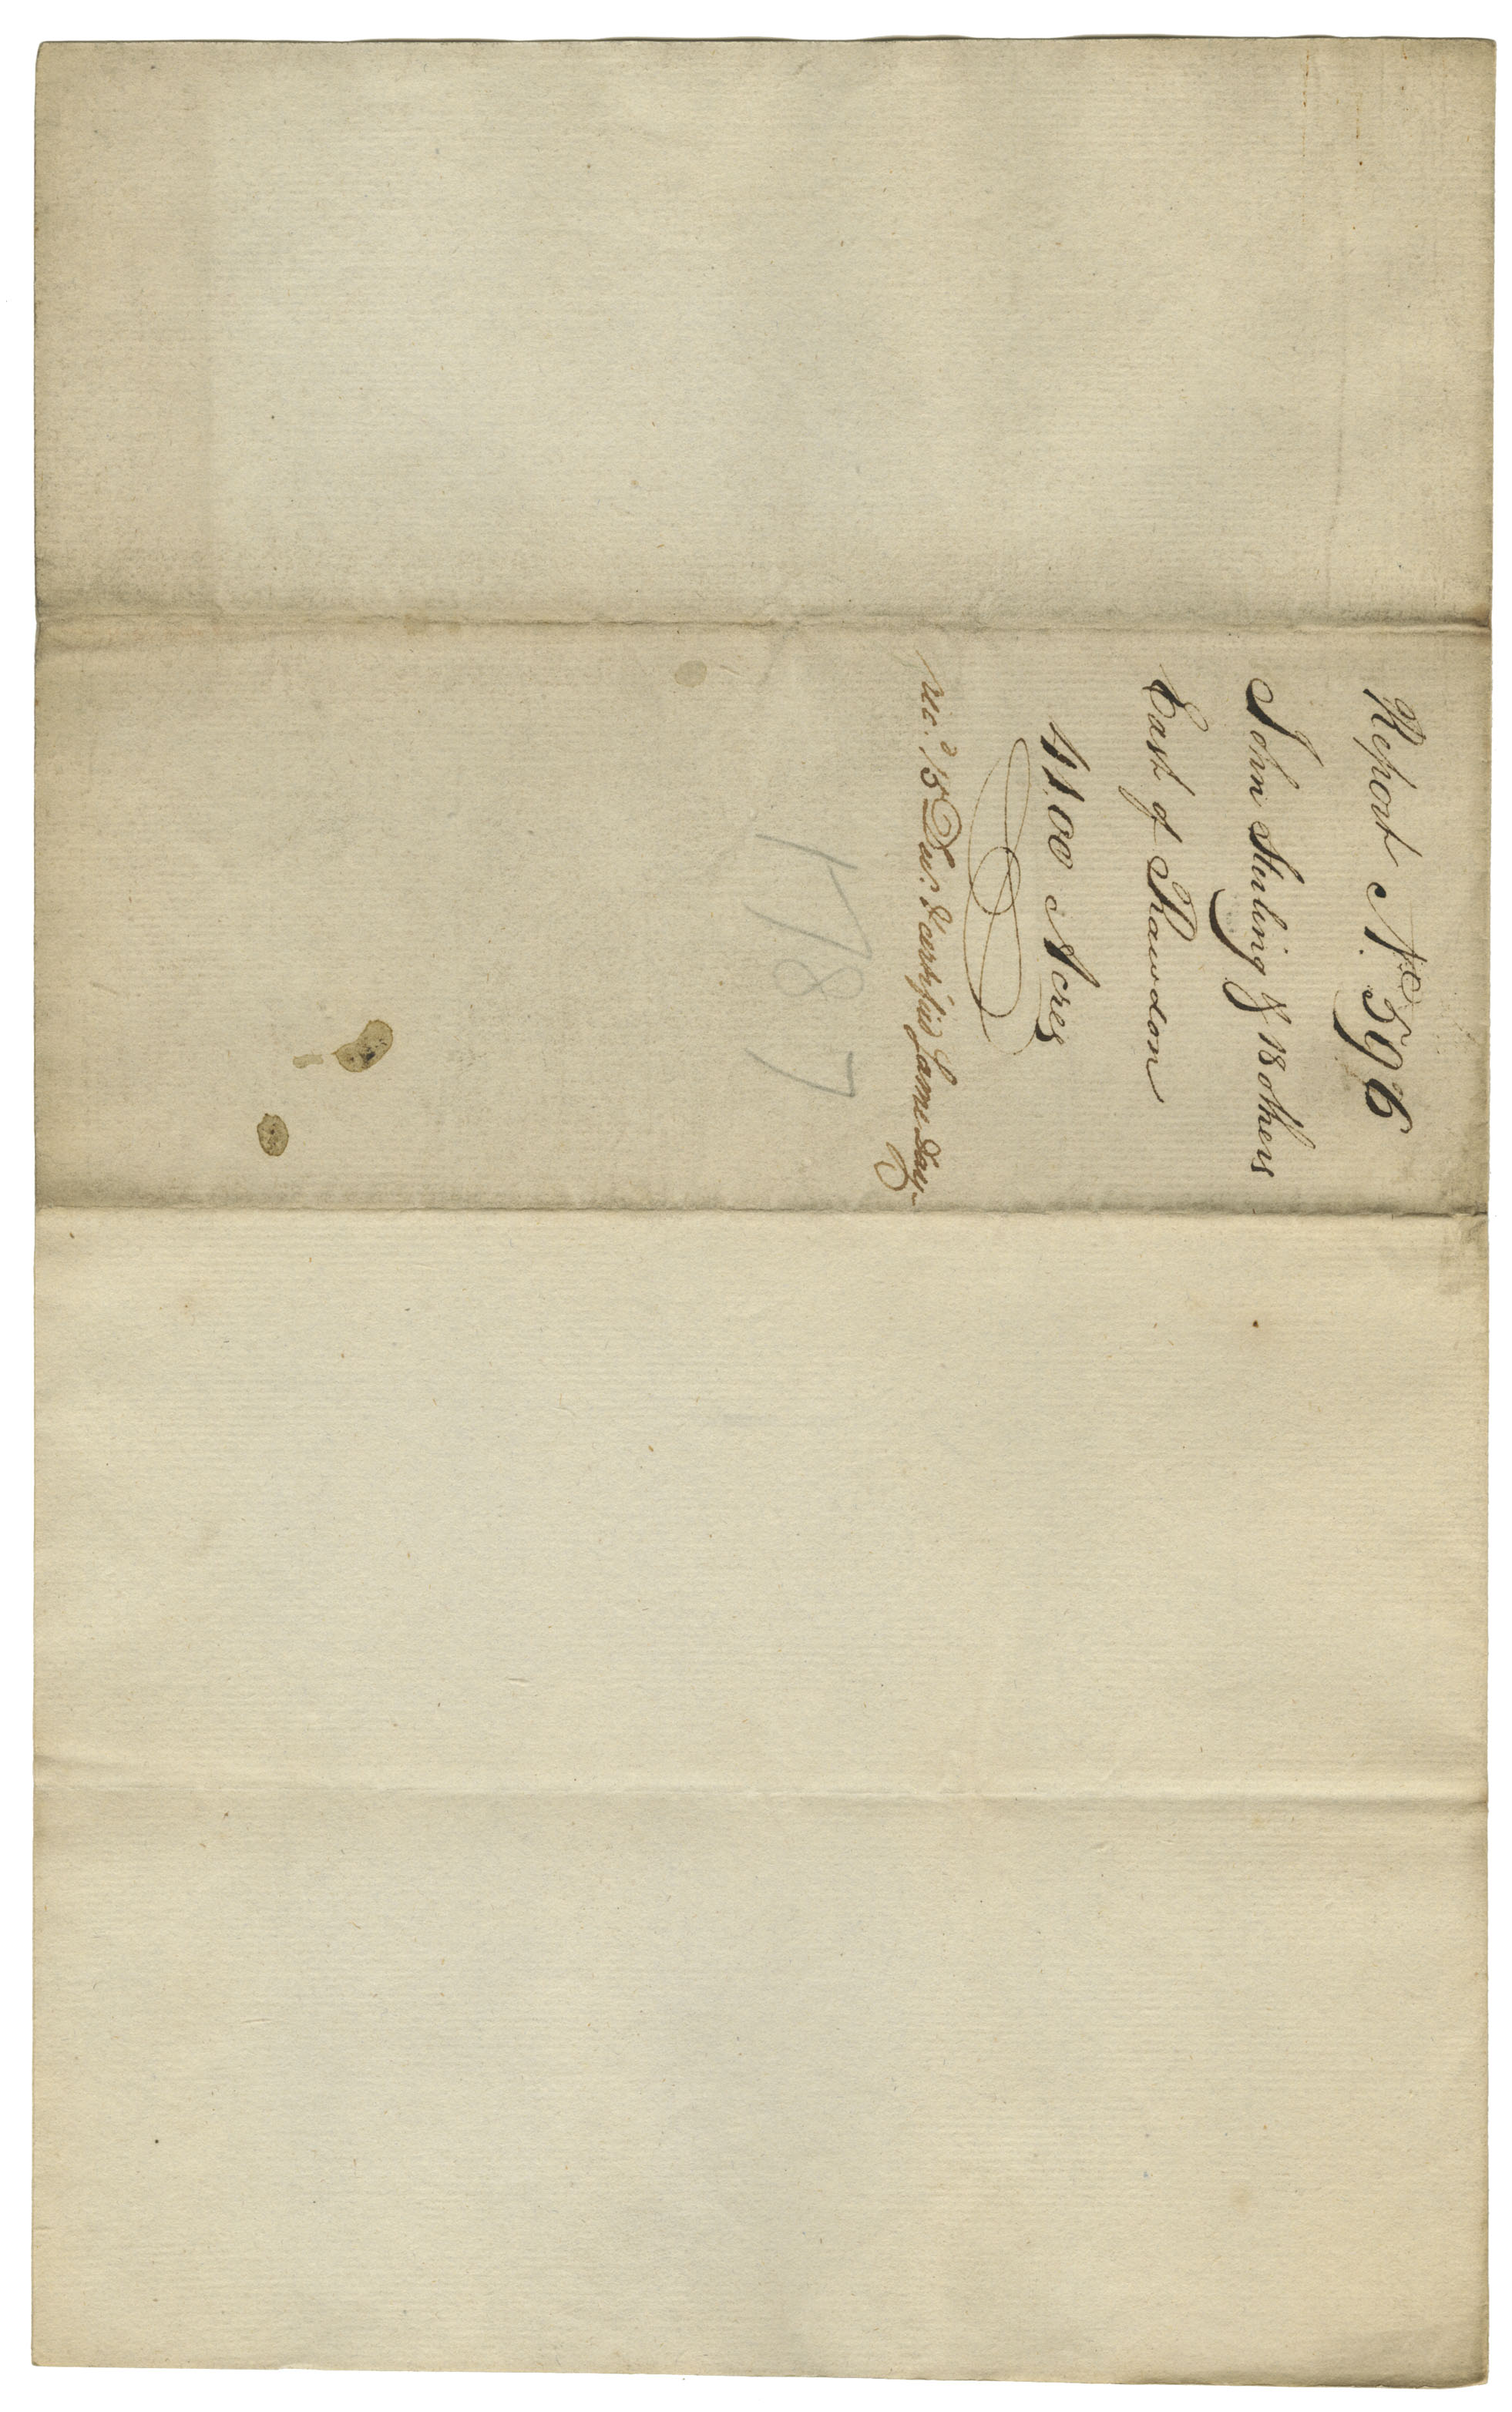 Report No. 596
John Sterling & 18 others
East of Rawdon
4100 Acres
rec.d 15 Dec. & certified Same Day
1787